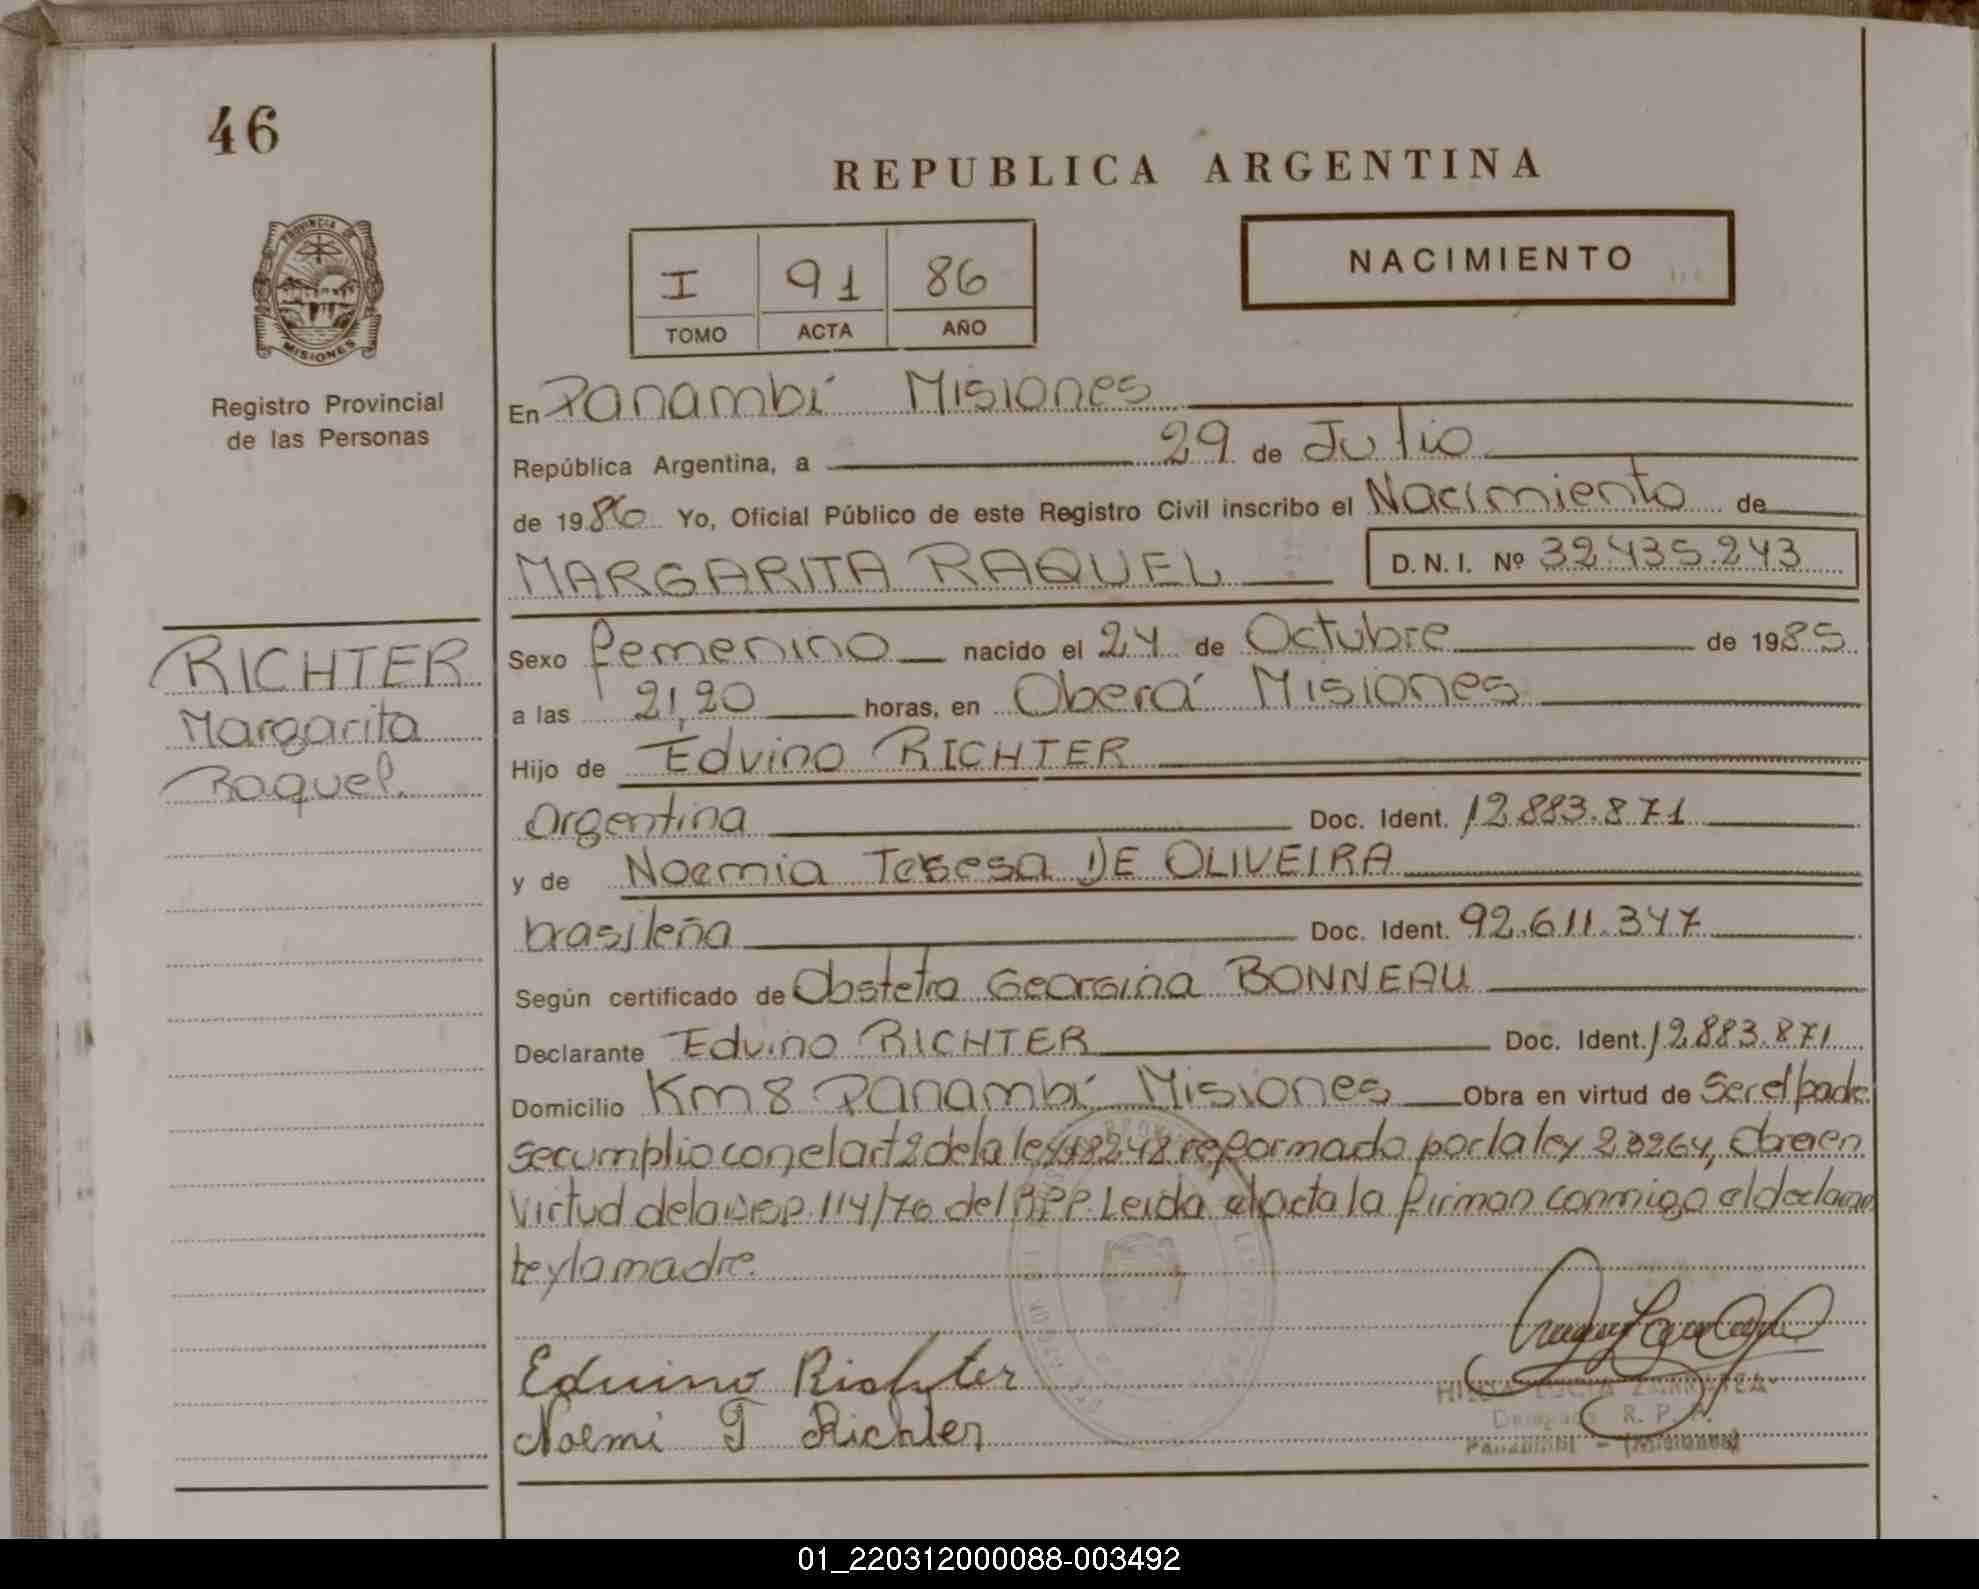 46
REPUBLICA ARGENTINA
PROVINCIA DE
MISIONES
Registro Provincial
de las Personas
I 91 86
TOMO ACTA AÑO
NACIMIENTO
En Panambí Misiones
República Argentina, a 29 de Julio
de 1986 Yo, Oficial Público de este Registro Civil inscribo el Nacimiento de
MARGARITA RAQUEL D.N.I. Nº 32.435.243
RICHTER
Margarita
Raquel.
Sexo femenino nacido el 24 de Octubre de 1985
a las 21,20 horas, en Oberá Misiones
Hijo de Edvino RICHTER
argentina Doc. Ident. 12.883.871
y de Noemia Teresa DE OLIVEIRA
brasileña Doc. Ident. 92.611.347
Según certificado de Obstetra Georgina BONNEAU
Declarante Edvino RICHTER Doc. Ident. 12.883.871
Domicilio Km 8 Panambí Misiones Obra en virtud de ser el padre
se cumplio con el art 2 de la ley 18248 reformado por la ley 20264, Obra en
virtud de la Disp. 114/70 del RPP. Leida el acta la firman conmigo el declaran
te y la madre.
Edvino Richter
Noemi T Richter
Panambi - (Misiones)
01_220312000088-003492